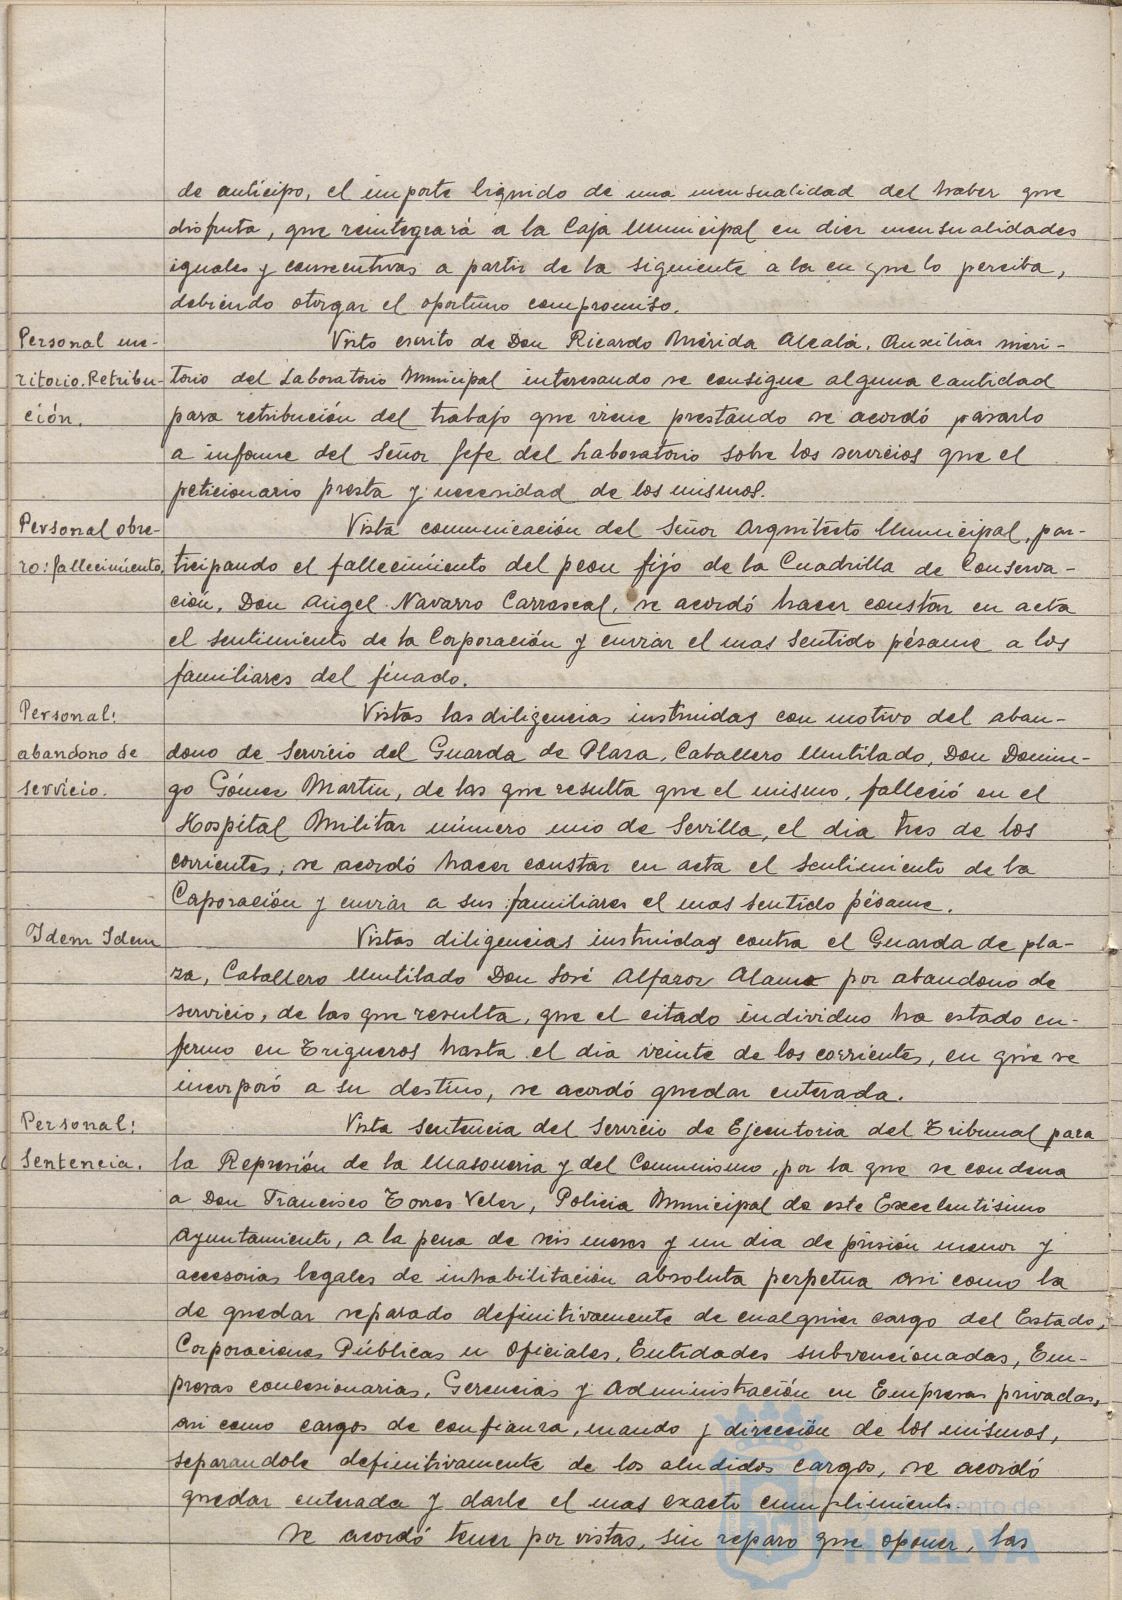 de anticipo, el importe liquido de una mensualidad del haber que
disfruta, que reintegrará a la Caja Municipal en diez mensualidades
iguales y consecutivas a partir de la siguiente a la en que lo perciba,
debiendo otorgar el oportuno compromiso.
Personal me-
ritorio. Retribu-
ción.
Visto escrito de Don Ricardo Mérida Alcalá, Auxiliar meri-
torio del Laboratorio Municipal interesando se consigne alguna cantidad
para retribución del trabajo que viene prestando se acordó pasarlo
a informe del Señor Jefe del Laboratorio sobre los servicios que el
peticionario presta y necesidad de los mismos.
Personal obre-
ro: fallecimiento.
Vista comunicación del Señor Arquitecto Municipal, par-
ticipando el fallecimiento del peon fijo de la Cuadrilla de Conserva-
ción, Don Angel Navarro Carrascal, se acordó hacer constar en acta
el sentimiento de la Corporación y enviar el mas sentido pésame a los
familiares del finado.
Personal:
abandono de
servicio.
Vistas las diligencias instruidas con motivo del aban-
dono de servicio del Guarda de Plaza, Caballero Mutilado, Don Domin-
go Gómez Martin, de las que resulta que el mismo, falleció en el
Hospital Militar número uno de Sevilla, el dia tres de los
corrientes, se acordó hacer constar en acta el sentimiento de la
Corporación y enviar a sus familiares el mas sentido pésame.
Idem Idem
Vistas diligencias instruidas contra el Guarda de pla-
za, Caballero Mutilado Don José Alfaror Alama por abandono de
servicio, de las que resulta, que el citado individuo ha estado en-
fermo en Trigueros hasta el dia veinte de los corrientes, en que se
incorporó a su destino, se acordó quedar enterada.
Personal:
Sentencia.
Vista sentencia del Servicio de Ejecutoria del Tribunal para
la Represión de la Masoneria y del Comunismo, por la que se condena
a Don Francisco Torres Velez, Policia Municipal de este Excelentisimo
Ayuntamiento, a la pena de seis meses y un dia de prisión menor y
accesorias legales de inhabilitación absoluta perpetua asi como la
de quedar separado definitivamente de cualquier cargo del Estado,
Corporaciones Públicas u Oficiales, Entidades subvencionadas, Em-
presas concesionarias, Gerencias y Administración en Empresas privadas,
asi como cargos de confianza, mando y dirección de los mismos,
separandole definitivamente de los aludidos cargos, se acordó
quedar enterada y darle el mas exacto cumplimiento.
Se acordó tener por vistas, sin reparo que oponer, las
Ayuntamiento de
HUELVA